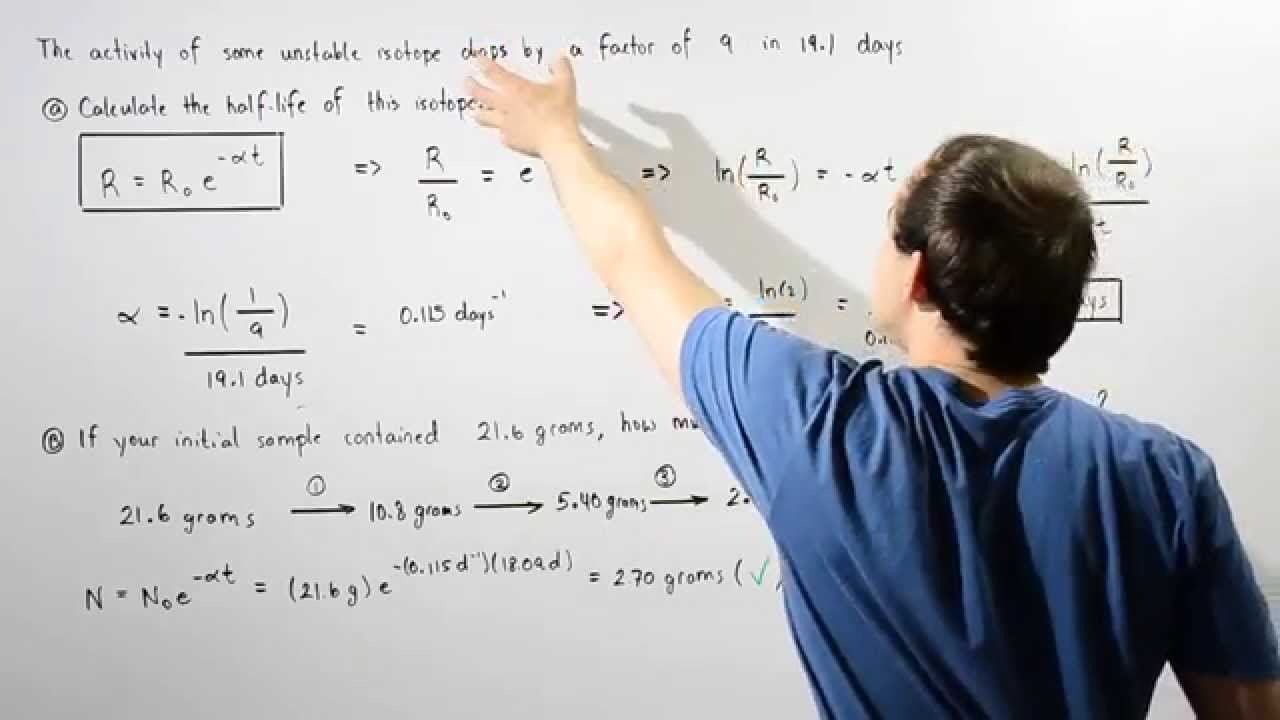 The activity of some unstable isotope drops by a factor of 9 in 19.1 days
Ⓐ Calculate the half-life of this isotope.
R = R₀e^(-αt) => R/R₀ = e => ln(R/R₀) = -αt ln(R/R₀)/t
α = -ln(1/9)/19.1 days = 0.115 days⁻¹ => = ln(2) =
Ⓑ If your initial sample contained 21.6 grams, how ?
21.6 grams ①→ 10.8 grams ②→ 5.40 grams ③→ 2.
N = N₀e^(-αt) = (21.6g)e^(-(0.115d⁻¹)(18.09d)) = 2.70 grams (✓